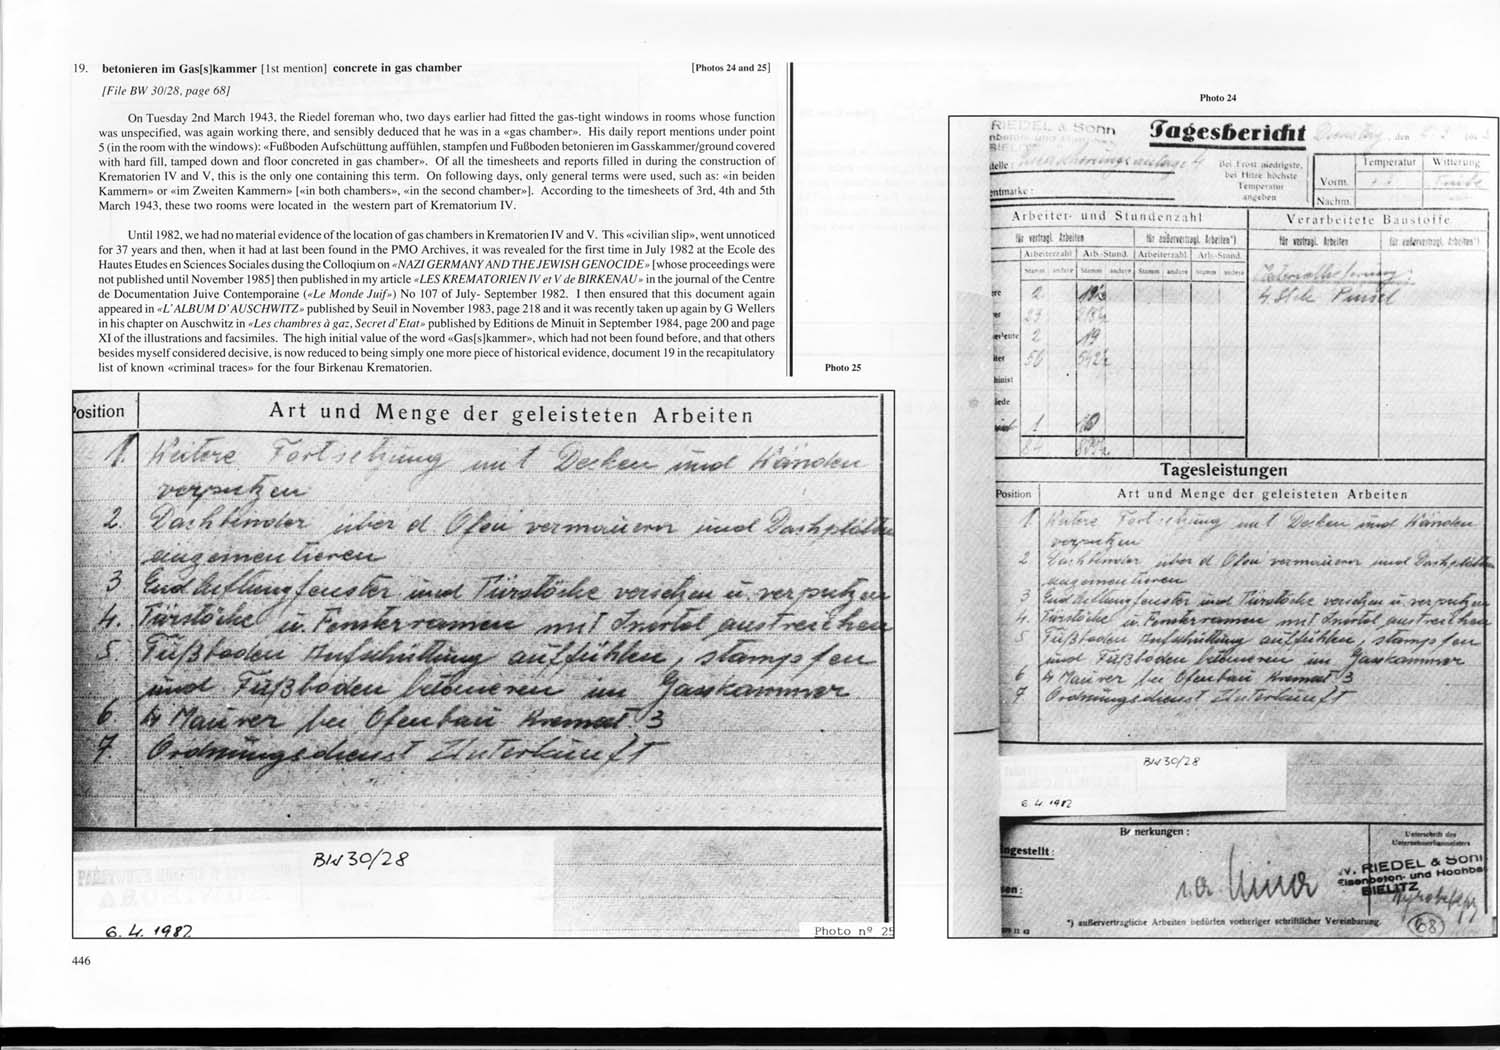 19. betonieren im Gas[s]kammer [1st mention] concrete in gas chamber [Photos 24 and 25]
[File BW 30/28, page 68]
On Tuesday 2nd March 1943, the Riedel foreman who, two days earlier had fitted the gas-tight windows in rooms whose function
was unspecified, was again working there, and sensibly deduced that he was in a «gas chamber». His daily report mentions under point
5 (in the room with the windows): «Fußboden Aufschüttung auffühlen, stampfen und Fußboden betonieren im Gasskammer/ground covered
with hard fill, tamped down and floor concreted in gas chamber». Of all the timesheets and reports filled in during the construction of
Krematorien IV and V, this is the only one containing this term. On following days, only general terms were used, such as: «in beiden
Kammern» or «im Zweiten Kammern» [«in both chambers», «in the second chamber»]. According to the timesheets of 3rd, 4th and 5th
March 1943, these two rooms were located in the western part of Krematorium IV.
Until 1982, we had no material evidence of the location of gas chambers in Krematorien IV and V. This «civilian slip», went unnoticed
for 37 years and then, when it had at last been found in the PMO Archives, it was revealed for the first time in July 1982 at the Ecole des
Hautes Etudes en Sciences Sociales dusing the Colloqium on «NAZI GERMANY AND THE JEWISH GENOCIDE» [whose proceedings were
not published until November 1985] then published in my article «LES KREMATORIEN IV et V de BIRKENAU» in the journal of the Centre
de Documentation Juive Contemporaine («Le Monde Juif») No 107 of July- September 1982. I then ensured that this document again
appeared in «L'ALBUM D'AUSCHWITZ» published by Seuil in November 1983, page 218 and it was recently taken up again by G Wellers
in his chapter on Auschwitz in «Les chambres à gaz, Secret d'Etat» published by Editions de Minuit in September 1984, page 200 and page
XI of the illustrations and facsimiles. The high initial value of the word «Gas[s]kammer», which had not been found before, and that others
besides myself considered decisive, is now reduced to being simply one more piece of historical evidence, document 19 in the recapitulatory
list of known «criminal traces» for the four Birkenau Krematorien.
Photo 25
Position Art und Menge der geleisteten Arbeiten
1. Weitere Fortsetzung mit Decken und Wänden
verputzen
2. Dachbinder über d. Ofen vermauern und Dachplätten
3 Entlüftungfenster und Türstöcke versetzen u. verputzen
4. Türstöcke u. Fensterramen mit Inertol austreichen
5. Fußboden Aufschüttung auffühlen, stampfen
und Fußboden betonieren im Gasskammer
6. 4 Maurer bei Ofenbau Kremat. 3
7. Ordnungsdienst Unterkunft
BW 30/28
6.4.1982
Photo nº 25
446
Photo 24
RIEDEL & Sohn
Tagesbericht Dienstag, den
Bei Frost niedrigste,
bei Hitze höchste
Temperatur
angeben
Temperatur Witterung
Vorm.
Nachm.
Arbeiter- und Stundenzahl Verarbeitete Baustoffe
für vertragl. Arbeiten für außervertragl. Arbeiten*) für vertragl. Arbeiten für außervertragl. Arbeiten*)
Arbeiterzahl Arb.-Stund. Arbeiterzahl Arb.-Stund.
Stamm andere Stamm andere Stamm andere Stamm andere
2
4 Stck Pinsel
23
2 19
56
1 10
Tagesleistungen
Position Art und Menge der geleisteten Arbeiten
1 Weitere Fortsetzung mit Decken und Wänden
verputzen
2 Dachbinder über d Ofen vermauern und Dachplätten
3 Entlüftungfenster und Türstöcke versetzen u. verputzen
4. Türstöcke u. Fensterramen mit Inertol austreichen
5 Fußboden Aufschüttung auffühlen, stampfen
und Fußboden betonieren im Gasskammer
6 4 Maurer bei Ofenbau Kremat 3
7 Ordnungsdienst Unterkunft
BW 30/28
6.4.1982
Bemerkungen:
Unterschrift des
RIEDEL & SOHN
Eisenbeton- und Hochbau
BIELITZ
*) außervertragliche Arbeiten bedürfen vorheriger schriftlicher Vereinbarung.
68